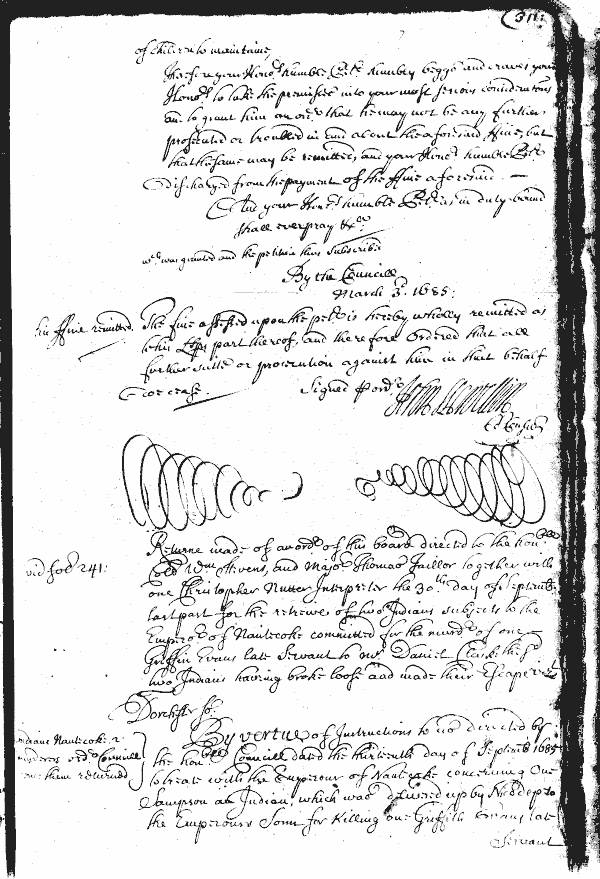 (311:
of Children to maintaine
Therefore your Hono.rs humble Pet.r humbly beggs and craves your
Hono.rs to take the premisses into your most serious consideracons
and to grant him an ord.r that he may not be any further
prosecuted or troubled in and about the aforesaid ffine, but
that the same may be remitted, and your Hono.rs humble Pet.r
discharged from the payment of the ffine aforesaid. —
And your Hono.rs humble Pet.r as in duty bound
shall ever pray &c.a
w.ch was granted and the petition thus subscribed
By the Councill
March 3.d 1685:
his ffine remitted.
The fine assessed upon the pet.r is hereby wholly remitted as
to his part thereof, and therefore Ordered that all
further suite or prosecution against him in that behalf
doe cease.
Signed p ord.r
vid fol.o 241:
Returne made of an ord.r of this board directed to the hon.ble
Coll W.m Stevens, and Maj.r Thomas Taillor together with
one Christopher Nutter Interpreter the 30.th day of Septemb.r
last past for the retreive of two Indians subjects to the
Emperor of Nanticoke committed for the murd.r of one
Griffin Evans late Servant to m.r Daniel Clark the s.d
two Indians having broke loose and made their Escape viz.t
Dorchest.r ss.
Indians Nanticoke 2
murderers ord.r Councill
them returned
By vertue of Instructions to us directed by
the hon.ble Councill dated the thirteenth day of Septemb 1685
to treate with the Emperour of Nanticoke concerning One
Sampson an Indian, which was delivered up by
the Emperours Sonn for killing one Griffith Evans late
Servant